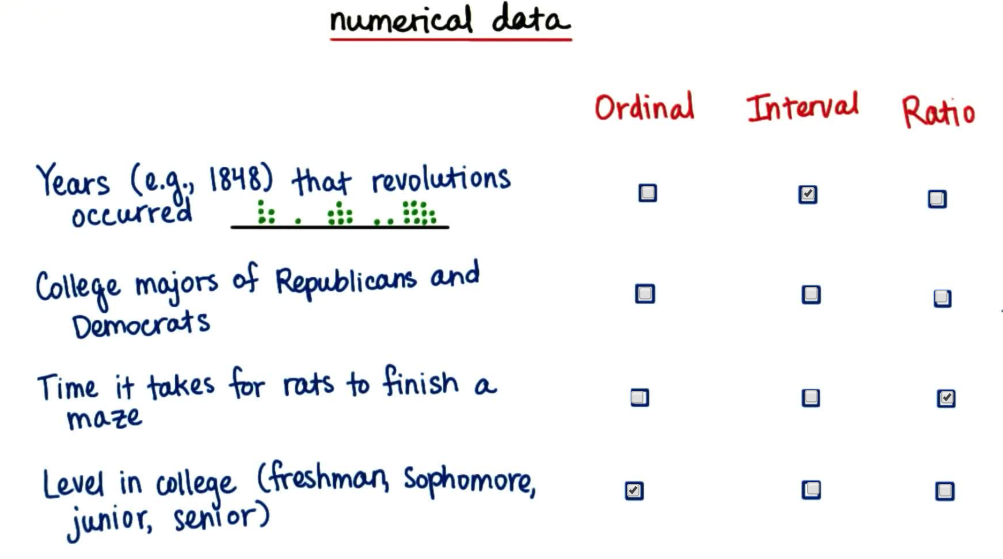 numerical data
Ordinal Interval Ratio
Years (e.g., 1848) that revolutions
occurred
College majors of Republicans and
Democrats
Time it takes for rats to finish a
maze
Level in college (freshman, sophomore,
junior, senior)